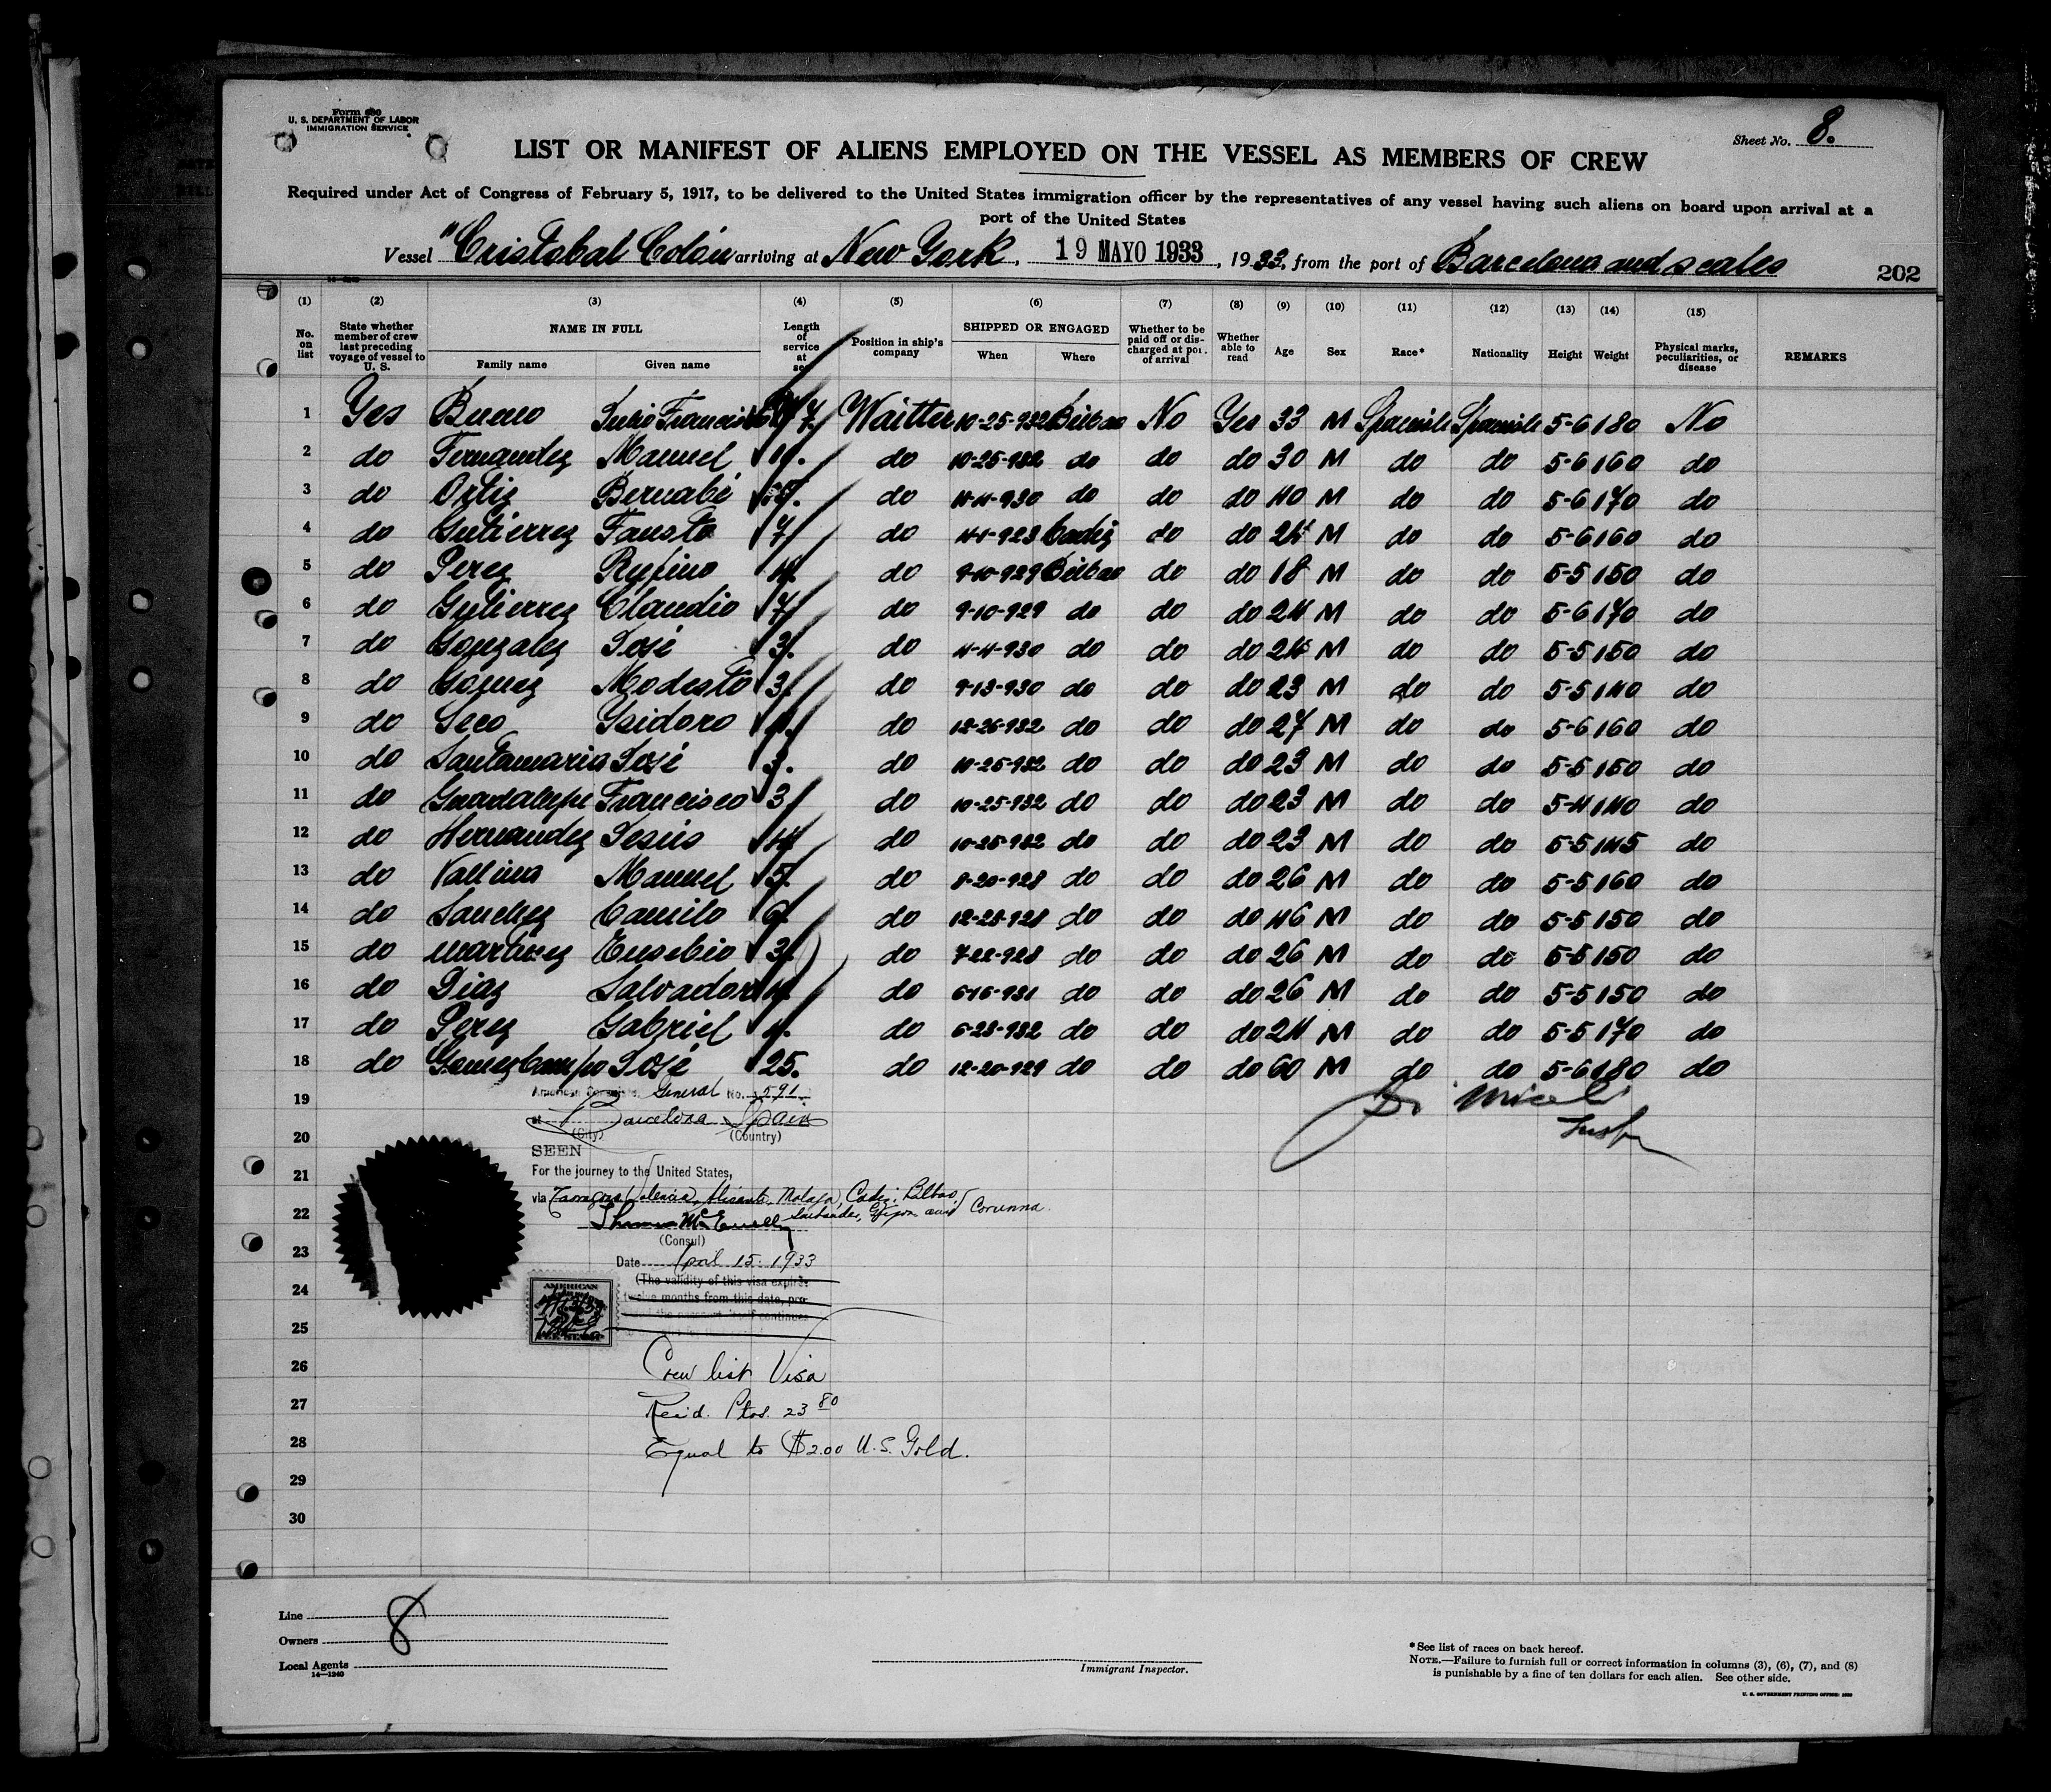 Form 680
U. S. DEPARTMENT OF LABOR
IMMIGRATION SERVICE
Sheet No. 8.
LIST OR MANIFEST OF ALIENS EMPLOYED ON THE VESSEL AS MEMBERS OF CREW
Required under Act of Congress of February 5, 1917, to be delivered to the United States immigration officer by the representatives of any vessel having such aliens on board upon arrival at a
port of the United States
Vessel "Cristobal Colón arriving at New York, 19 MAYO 1933, 1933, from the port of Barcelona and scales
202
(1) (2) (3) (4) (5) (6) (7) (8) (9) (10) (11) (12) (13) (14) (15)
No. on list
State whether member of crew last preceding voyage of vessel to U. S.
NAME IN FULL
Family name Given name
Length of service at sea
Position in ship's company
SHIPPED OR ENGAGED
When Where
Whether to be paid off or discharged at port of arrival
Whether able to read
Age Sex Race* Nationality Height Weight
Physical marks, peculiarities, or disease
REMARKS
1 Yes Bueno Julio Francisco 7 Waitter 10-25-932 Bilbao No Yes 33 M Spanish Spanish 5-6 180 No
2 do Fernandez Manuel do 10-25-932 do do do 30 M do do 5-6 160 do
3 do Ortiz Bernabé do 4-4-930 do do do 40 M do do 5-6 170 do
4 do Gutierrez Fausto 7 do 4-1-923 Cadiz do do 24 M do do 5-6 160 do
5 do Perez Rufino 4 do 9-10-929 Bilbao do do 18 M do do 5-5 150 do
6 do Gutierrez Claudio 7 do 9-10-929 do do do 24 M do do 5-6 170 do
7 do Gonzalez José 3. do 4-4-930 do do do 24 M do do 5-5 150 do
8 do Gomez Modesto 3 do 9-13-930 do do do 23 M do do 5-5 140 do
9 do Seco Ysidoro do 12-26-932 do do do 27 M do do 5-6 160 do
10 do Santamaria José 3. do 10-25-932 do do do 23 M do do 5-5 150 do
11 do Guadalupe Francisco 3 do 10-25-932 do do do 23 M do do 5-4 140 do
12 do Hernandez Jesús do 10-25-932 do do do 23 M do do 5-5 145 do
13 do Vallina Manuel 5. do 8-20-928 do do do 26 M do do 5-5 160 do
14 do Sanchez Camilo do 12-28-928 do do do 46 M do do 5-5 150 do
15 do Martinez Eusebio 3 do 7-22-928 do do do 26 M do do 5-5 150 do
16 do Diaz Salvador 4 do 6-16-931 do do do 26 M do do 5-5 150 do
17 do Perez Gabriel 4. do 6-28-932 do do do 24 M do do 5-5 170 do
18 do Gomez Campo José 25. do 12-20-929 do do do 60 M do do 5-6 180 do
19
American Consulate General No. 591.
at Barcelona Spain
(City) (Country)
20
SEEN
21
For the journey to the United States,
via Tarragona, Valencia, Alicante, Malaga, Cadiz, Bilbao,
22
Santander, Gijon and Corunna.
(Consul)
23
Date April 15. 1933
(The validity of this visa expires
24
twelve months from this date, pro-
the passport itself continues
AMERICAN
25
26
Crew list Visa
27
Rec'd. Ptas. 23 80
28
Equal to $2.00 U.S. Gold.
29
30
Line
8
Owners
Local Agents
14—1240
Immigrant Inspector.
* See list of races on back hereof.
NOTE.—Failure to furnish full or correct information in columns (3), (6), (7), and (8)
is punishable by a fine of ten dollars for each alien. See other side.
U. S. GOVERNMENT PRINTING OFFICE